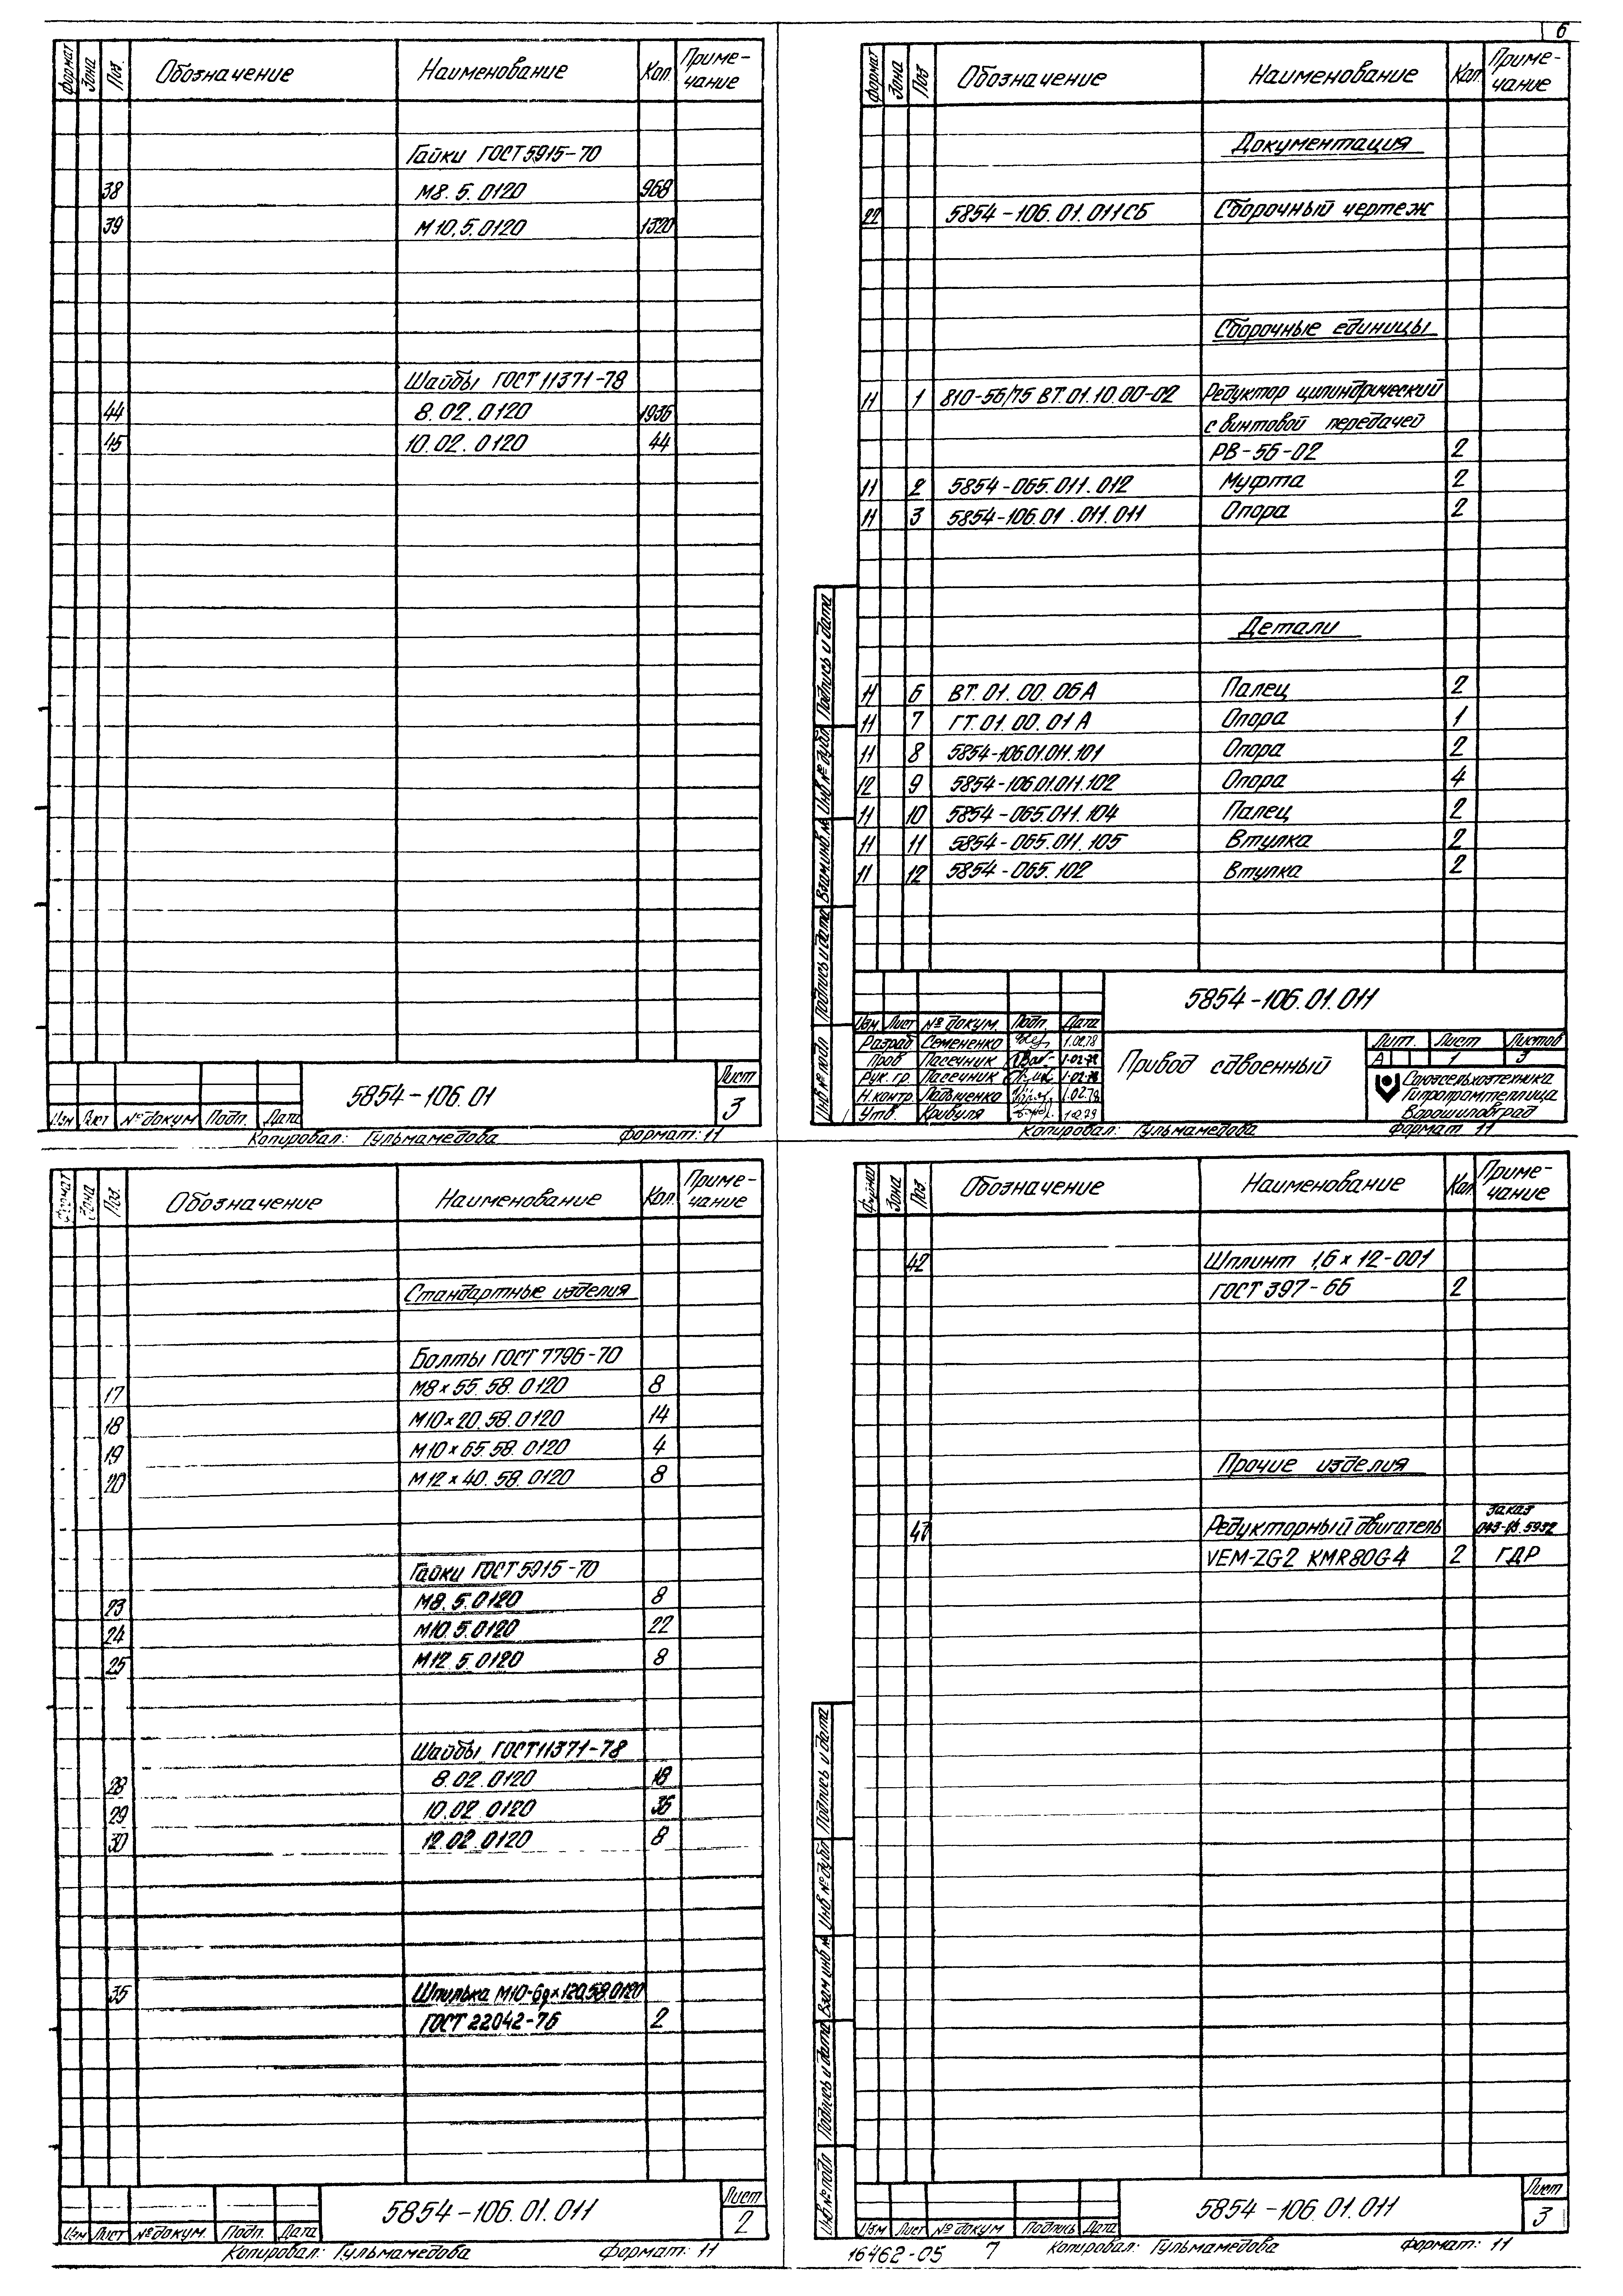 6
формат Зона Поз. Обозначение Наименование Кол. Приме-
чание
Гайки ГОСТ 5915-70
38 М8. 5. 0120 968
39 М10,5. 0120 1320
Шайбы ГОСТ 11371-78
44 8. 02. 0120 1936
45 10. 02. 0120 44
5854-106. 01
Лист
3
Изм Лист № докум Подп. Дата
Копировал: Гульмамедова Формат: 11
формат Зона Поз Обозначение Наименование Кол Приме-
чание
Документация
22 5854-106. 01. 011СБ Сборочный чертеж
Сборочные единицы
11 1 810-56/75 ВТ. 01. 10. 00-02 Редуктор цилиндрический
с винтовой передачей
РВ-56-02 2
11 2 5854-065. 011. 012 Муфта 2
11 3 5854-106. 01. 011. 011 Опора 2
Детали
11 6 ВТ. 01. 00. 06А Палец 2
11 7 ГТ. 01. 00. 01А Опора 1
11 8 5854-106.01.011. 101 Опора 2
12 9 5854-106.01.011. 102 Опора 4
11 10 5854-065.011. 104 Палец 2
11 11 5854-065. 011. 105 Втулка 2
11 12 5854-065. 102 Втулка 2
Подпись и дата
Инв № дубл
Взам. инв. №
Подпись и дата
Инв № подл
5854-106. 01. 011
Изм. Лист № докум. Подп. Дата
Разраб Семененко 1.02.78
Пров Пасечник 1.02.78
Рук. гр. Пасечник 1.02.78
Н.контр 1.02.78
Утв. Кривуля
Привод сдвоенный
Лит. Лист Листов
А 1 3
Союзсельхозтехника
Гипропромтеплица
Ворошиловград
Копировал: Гульмамедова Формат 11
Формат Зона Поз. Обозначение Наименование Кол. Приме-
чание
Стандартные изделия
Болты ГОСТ 7796-70
17 М8×55. 58. 0120 8
18 М10×20. 58. 0120 14
19 М10×65. 58. 0120 4
20 М12×40. 58. 0120 8
Гайки ГОСТ 5915-70
23 М8. 5. 0120 8
24 М10. 5. 0120 22
25 М12. 5. 0120 8
Шайбы ГОСТ 11371-78
28 8. 02. 0120 18
29 10. 02 0120 36
30 12. 02. 0120 8
35 Шпилька М10-6g×120.58.0120
ГОСТ 22042-76 2
5854-106. 01. 011
Лист
2
Изм Лист № докум. Подп. Дата
Копировал: Гульмамедова Формат: 11
Формат Зона Поз. Обозначение Наименование Кол Приме-
чание
42 Шплинт 1,6×12-001
ГОСТ 397-66 2
Прочие изделия
47 Редукторный двигатель Заказ
VEM-ZG2 KMR80G4 2 ГДР
Подпись и дата
Инв. № дубл
Взам инв №
Подпись и дата
Инв № подл
5854-106. 01. 011
Лист
3
Изм Лист № докум Подпись Дата
16462-05 7 Копировал: Гульмамедова Формат: 11